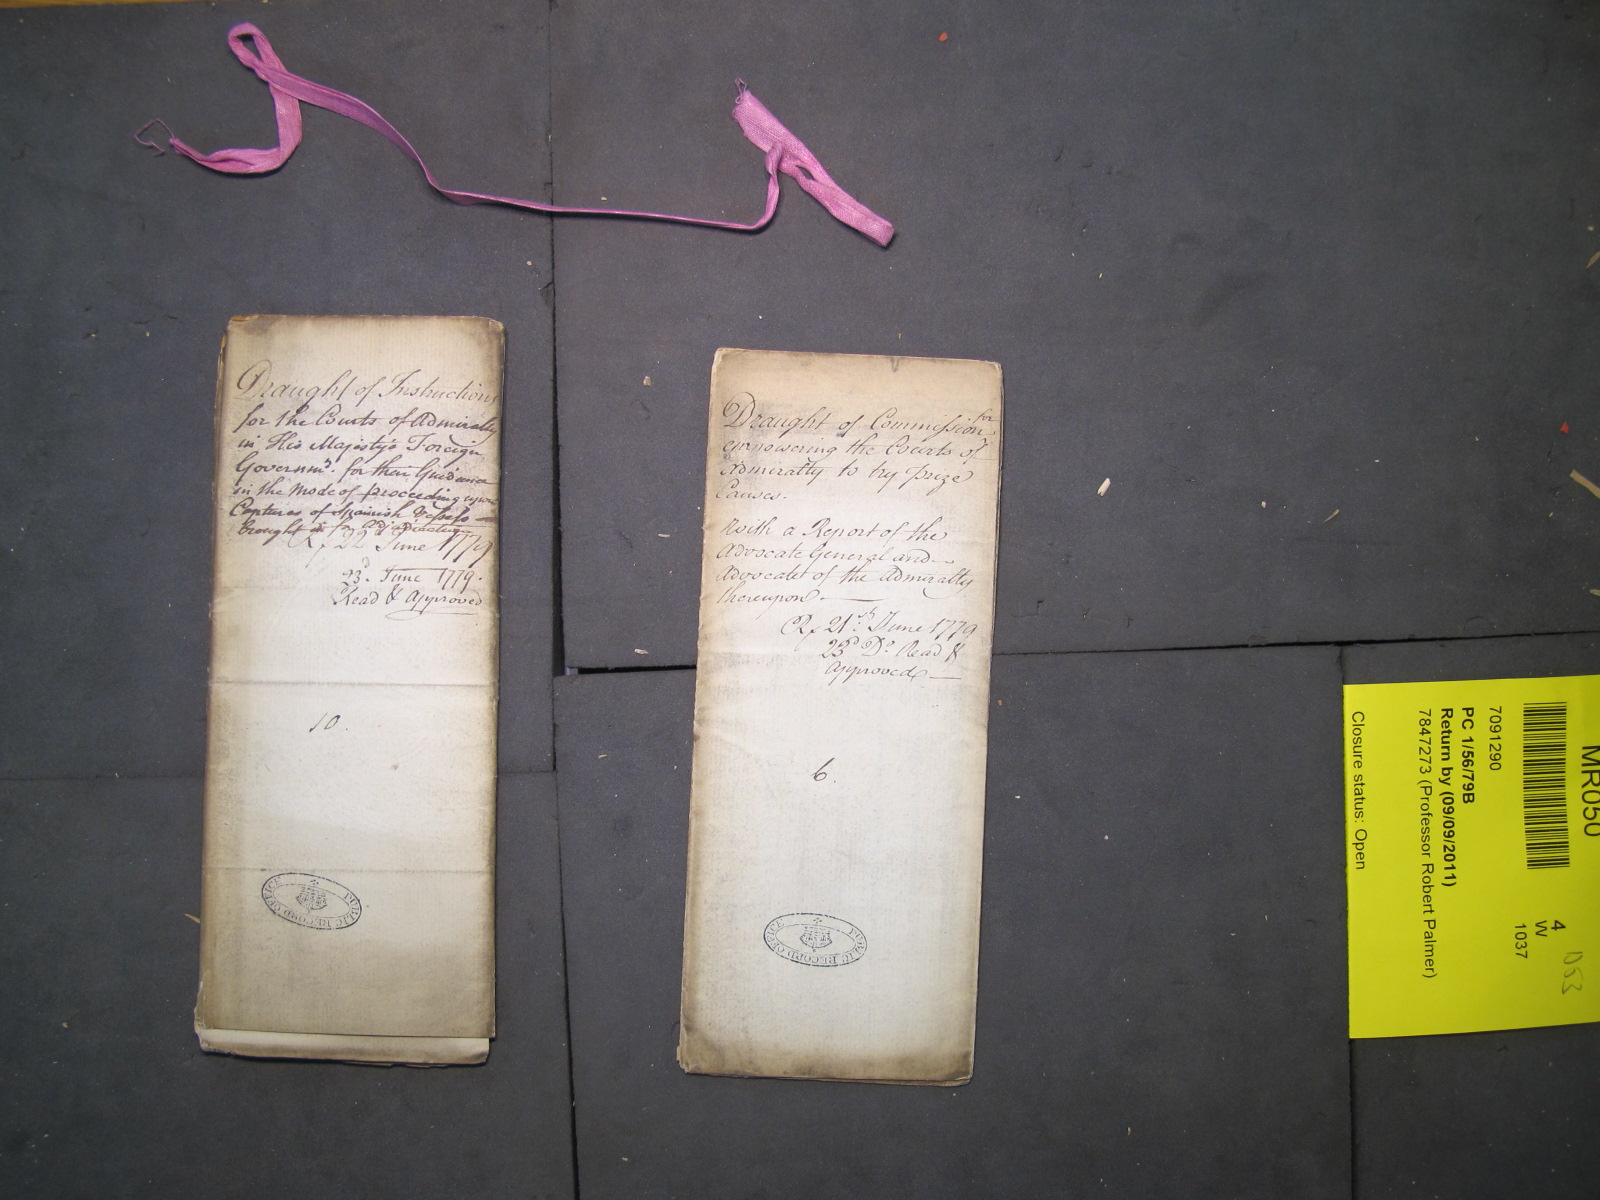 Draught of Instructions
for the Courts of Admiralty
in His Majesty's Foreign
Governm.ts for their Guidance
in the Mode of proceeding upon
Captures of Spanish Vessels
brought in for Adjudication
R/ 22 June 1779
23.d June 1779.
Read & Approved
10.
PUBLIC RECORD OFFICE
Draught of Commission for
empowering the Courts of
Admiralty to try prize
Causes.
With a Report of the
Advocate General and
Advocate of the Admiralty
thereupon.
R/ 21.st June 1779
23.d D.o Read &
approved
6.
PUBLIC RECORD OFFICE
MR050
7091290
PC 1/56/79B
Return by (09/09/2011)
7847273 (Professor Robert Palmer)
Closure status: Open
4
W
1037